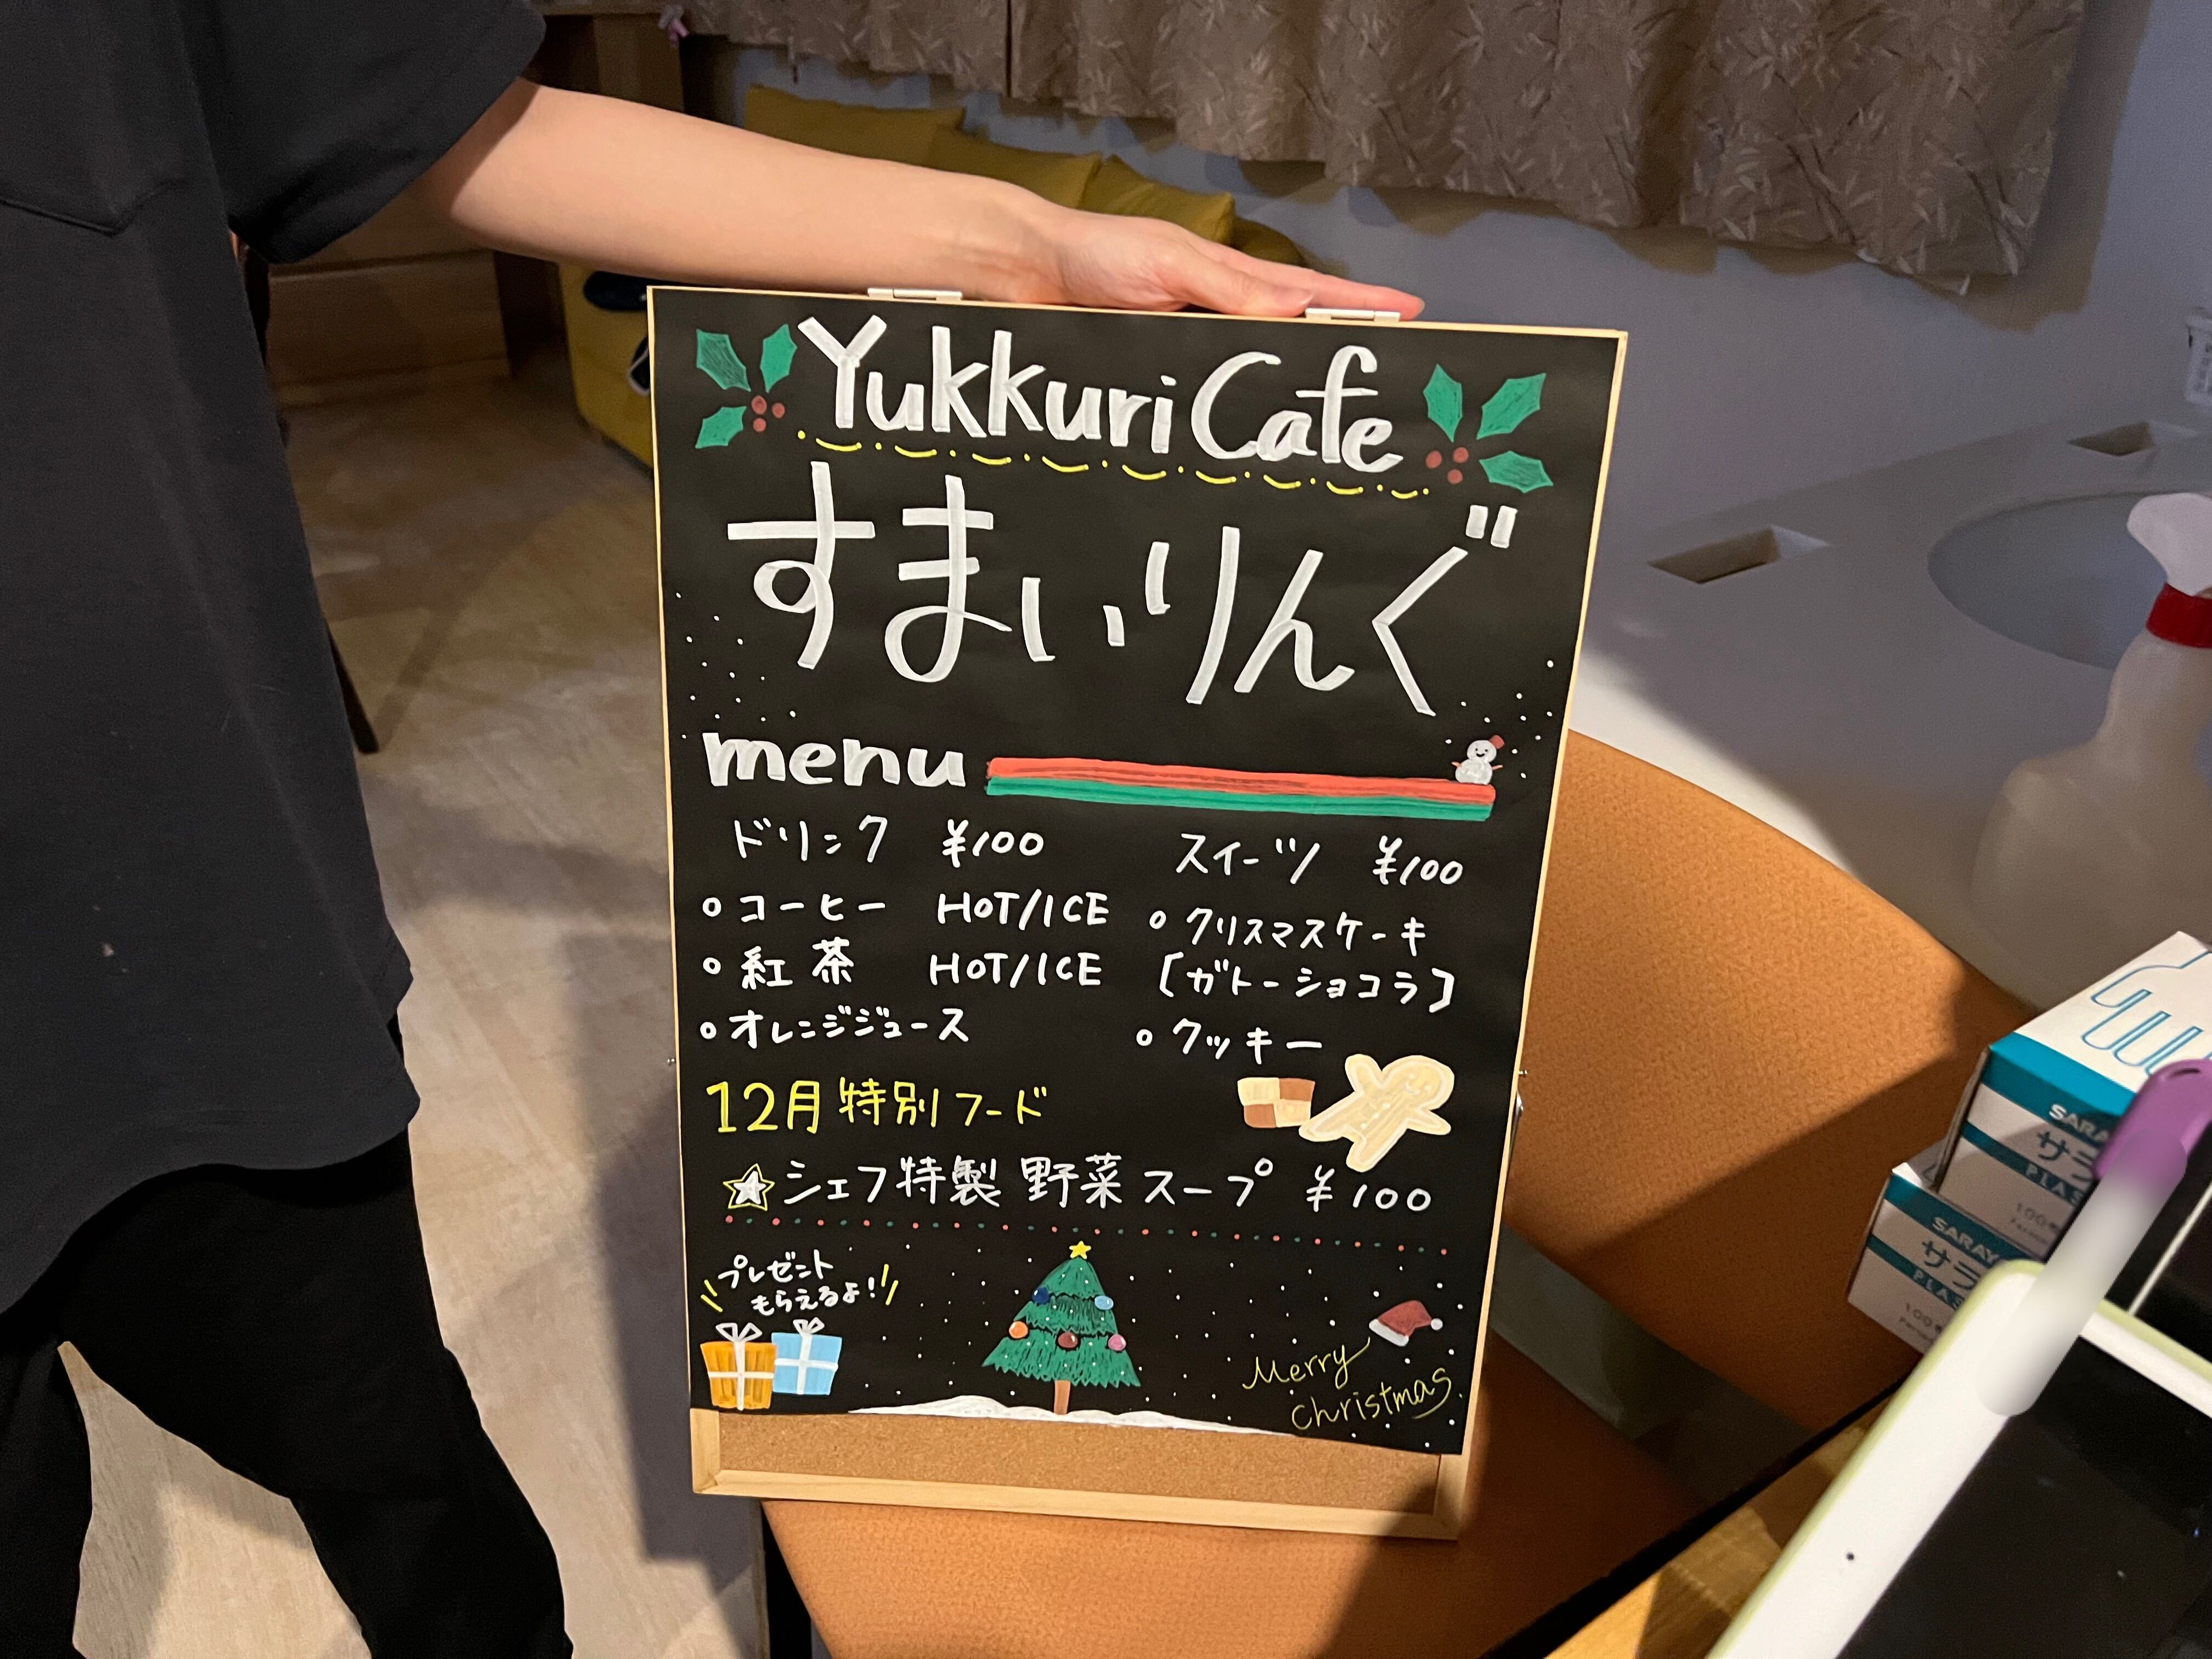 Yukkuri Cafe
すまいりんぐ
menu
ドリンク ¥100
○コーヒー HOT/ICE
○紅茶 HOT/ICE
○オレンジジュース
スイーツ ¥100
○クリスマスケーキ
[ガトーショコラ]
○クッキー
12月特別フード
☆シェフ特製 野菜スープ ¥100
プレゼント
もらえるよ!
Merry
christmas
SARAYA
サラ
100